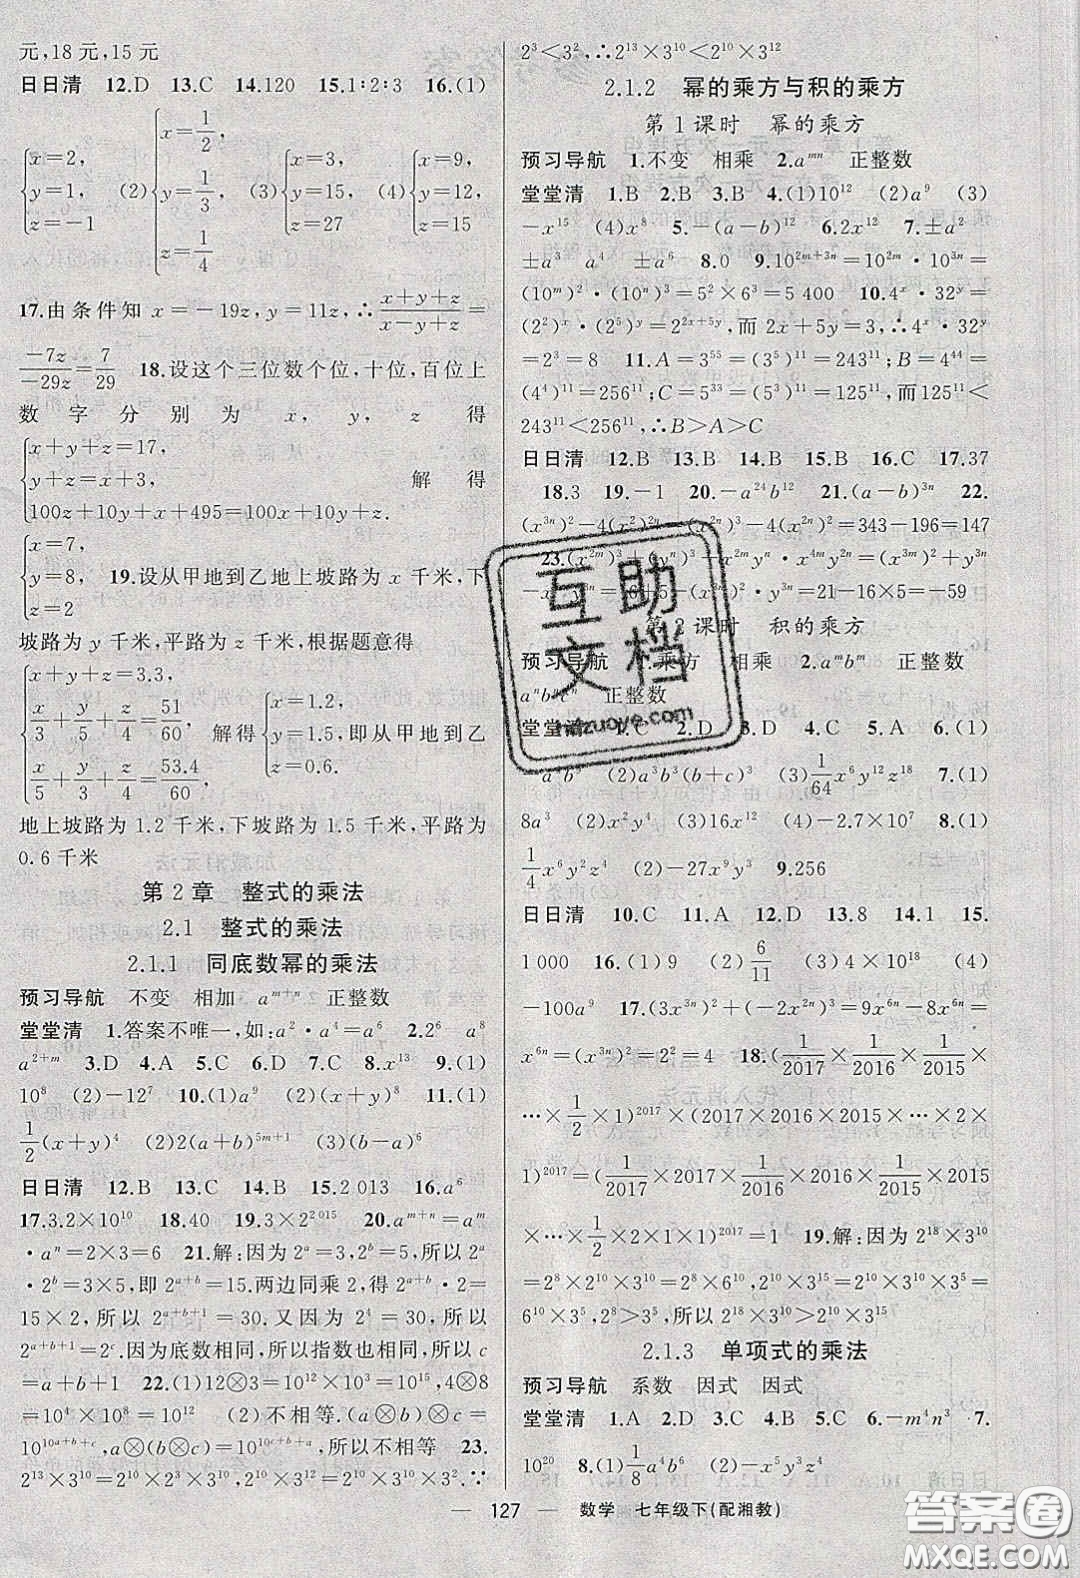 元,18元,15元
日日清 12.D 13.C 14.120 15.1∶2∶3 16.(1)
{x=2, y=1, z=-1 (2){x=1/2, y=1/3, z=1/4 (3){x=3, y=15, z=27 (4){x=9, y=12, z=15
17.由条件知 x=-19z,y=11z,∴(x+y+z)/(x-y+z)=
-7z/-29z=7/29 18.设这个三位数个位,十位,百位上
数字分别为 x, y, z 得
{x+y+z=17, y+z=x+3, 100z+10y+x+495=100x+10y+z. 解得
{x=7, y=8, z=2 19.设从甲地到乙地上坡路为 x 千米,下
坡路为 y 千米,平路为 z 千米,根据题意得
{x+y+z=3.3, x/3+y/5+z/4=51/60 x/5+y/3+z/4=53.4/60 解得{x=1.2, y=1.5, z=0.6. 即从甲地到乙
地上坡路为 1.2 千米,下坡路为 1.5 千米,平路为
0.6 千米
第2章 整式的乘法
2.1 整式的乘法
2.1.1 同底数幂的乘法
预习导航 不变 相加 a^(m+n) 正整数
堂堂清 1.答案不唯一,如:a²·a⁴=a⁶ 2.2⁶ a⁸
a^(2+m) 3.D 4.A 5.C 6.D 7.C 8.x¹³ 9.(1)
10⁸ (2)-12⁷ 10.(1)a⁹ (2)(x+y)⁸ 11.(1)
1/2(x+y)⁴ (2)2(a+b)^(5m+1) (3)(a-b)⁶
日日清 12.B 13.C 14.B 15.2 013 16.a⁶
17.3.2×10¹⁰ 18.40 19.3×2^2015 20.a^(m+n)=a^m
·a^n=2×3=6 21.解:因为2^a=3,2^b=5,所以2^a
·2^b=3×5,即2^(a+b)=15.两边同乘2,得2^(a+b)·2=
15×2,所以2^(a+b+1)=30.又因为2⁴=30,所以
2^(a+b+1)=2^c.因为底数相同,所以指数相同,所以c
=a+b+1 22.(1)12⊗3=10¹²×10³=10¹⁵,4⊗8
=10⁴×10⁸=10¹² (2)不相等.(a⊗b)⊗c=
10^(10^(a+b)+c),a⊗(b⊗c)=10^(10^(c+b)+a),所以不相等 23.
2¹³×3¹⁰=2¹⁰×2³×3¹⁰,2¹⁰×3¹²=2¹⁰×3¹⁰×3²,∵
2³<3²,∴2¹³×3¹⁰<2¹⁰×3¹²
2.1.2 幂的乘方与积的乘方
第1课时 幂的乘方
预习导航 1.不变 相乘 2.a^(mn) 正整数
堂堂清 1.B 2.B 3.B 4.(1)10¹² (2)a⁹ (3)
-x¹⁵ (4)x⁸ 5.-(a-b)¹⁶ 6.2x¹² 7.±a²
±a³ ±a⁴ ±a⁶ 8.0 9.10^(2m+3n)=10^(2m)·10^(3n)=
(10^m)²·(10^n)³=5²×6³=5 400 10.4^x·32^y=
(2²)^x·(2⁵)^y=2^(2x+5y),而2x+5y=3,∴4^x·32^y
=2³=8 11.A=3⁵⁵=(3⁵)¹¹=243¹¹;B=4⁴⁴=
(4⁴)¹¹=256¹¹;C=5³³=(5³)¹¹=125¹¹,而125¹¹<
243¹¹<256¹¹,∴B>A>C
日日清 12.B 13.B 14.B 15.B 16.C 17.37
18.3 19.-1 20.-a²⁴b¹² 21.(a-b)^(3n) 22.
(x^(3n))²-4(x²)^(2n)=(x^(2n))³-4(x^(2n))²=343-196=147
23.(x^(2m))³+(y^n)³-x^(2m)y^n·x^(4m)y^(2n)=(x^(3m))²+y^(3n)
-x^(6m)·y^(3n)=21-16×5=-59
第2课时 积的乘方
预习导航 1.乘方 相乘 2.a^m b^m 正整数
a^n b^n c^n 正整数
堂堂清 1.C 2.D 3.D 4.C 5.A 6.(1)
a⁵b⁵ (2)a³b³(b+c)³ (3)1/64x⁶y¹²z¹⁸ 7.(1)
8a³ (2)x²y⁴ (3)16x¹² (4)-2.7×10⁷ 8.(1)
1/4x⁶y²z⁴ (2)-27x⁹y³ 9.256
日日清 10.C 11.A 12.D 13.8 14.1 15.
1 000 16.(1)9 (2)6/11 (3)4×10¹⁸ (4)
-100a⁹ 17.(3x^(3n))²+(-2x^(2n))³=9x^(6n)-8x^(6n)=
x^(6n)=(x^(3n))²=2²=4 18.(1/2017×1/2016×1/2015×
…×1/2×1)^2017×(2017×2016×2015×…×2×
1)^2017=(1/2017×2017×1/2016×2016×1/2015×2015
×…×1/2×2×1)^2017=1 19.解:2¹⁸×3¹⁰
=2⁸×2¹⁰×3¹⁰=2⁸×6¹⁰,2¹⁰×3¹⁵=2¹⁰×3¹⁰×3⁵=
6¹⁰×3⁵,所以,2⁸>3⁵,所以2¹⁸×3¹⁰>2¹⁰×3¹⁵
2.1.3 单项式的乘法
预习导航 系数 因式 因式
堂堂清 1.A 2.D 3.C 4.A 5.C 6.-m⁴n³ 7.
10²⁰ 8.(1)1/8a⁴b⁶ (2)-x⁵y³z
127 数学 七年级下(配湘教)
互助文档
hdzuoye.com
答案圈
MXQE.COM